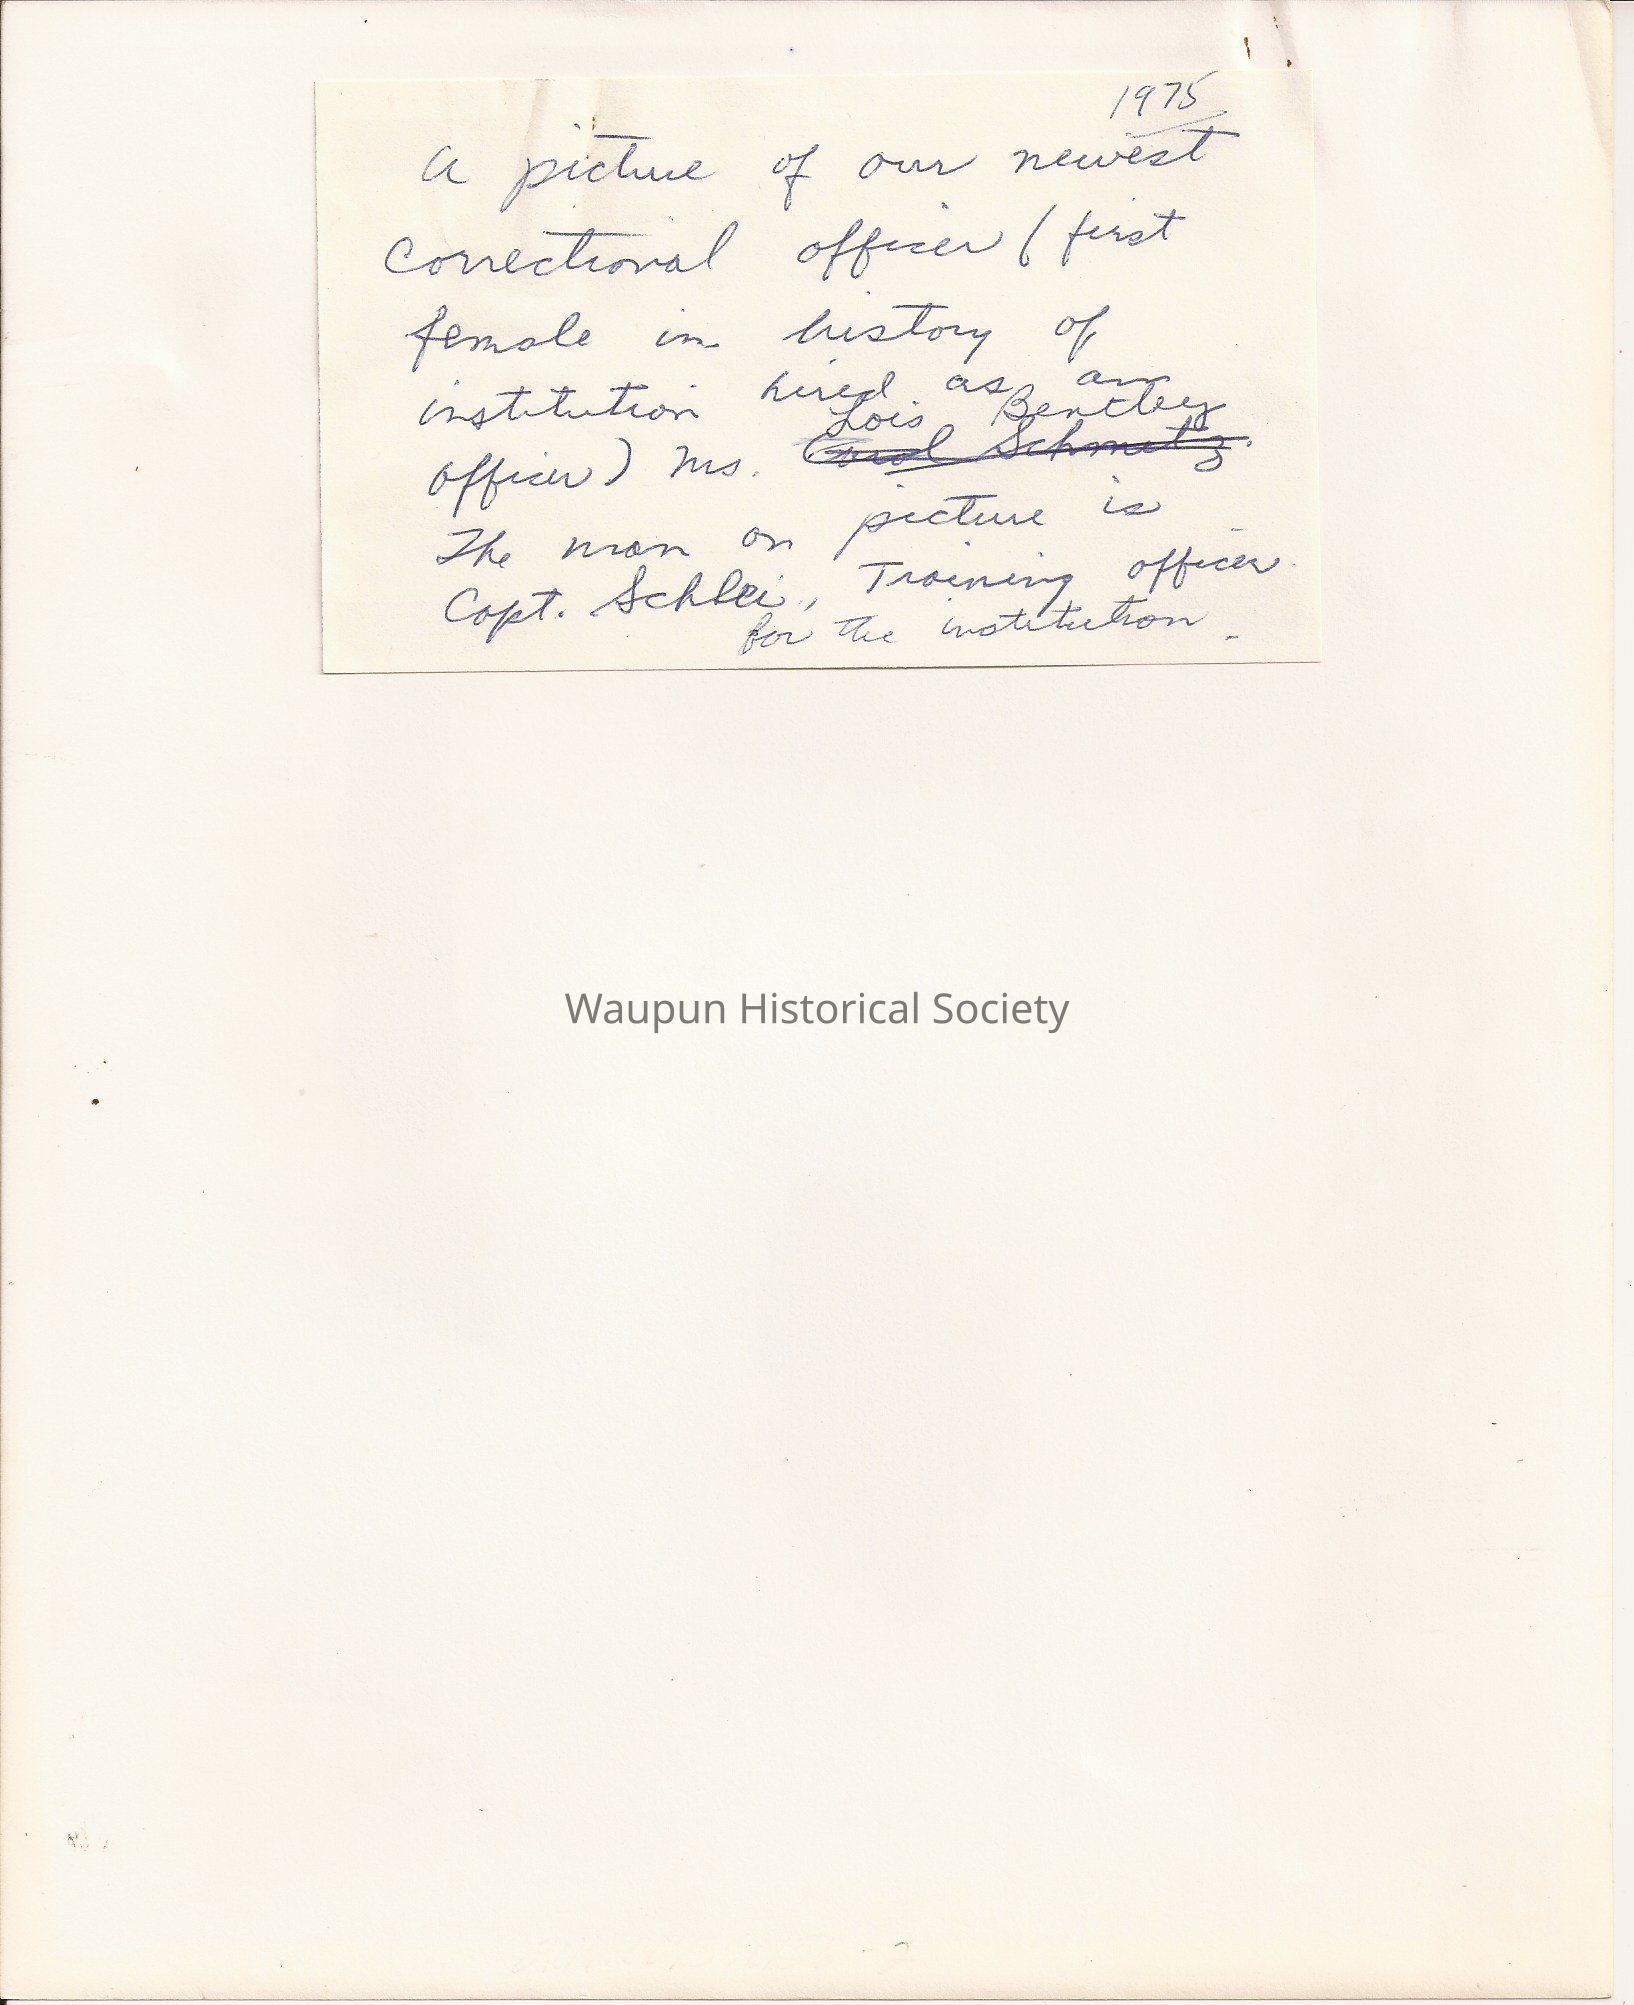 1975
A picture of our newest
correctional officer (first
female in history of
institution hired as an
Lois Bentley
officer) Ms. Carol Schmitz.
The man on picture is
Capt. Schlei, Training officer
for the institution.
Waupun Historical Society